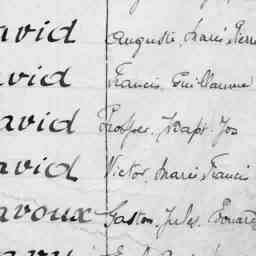 avid Auguste, Marie, Pierre
avid Francis, Guillaume
avid Prosper, Bapt. Jos
avid Victor, Marie, Francis
avoux Gaston, Jules, Edouard